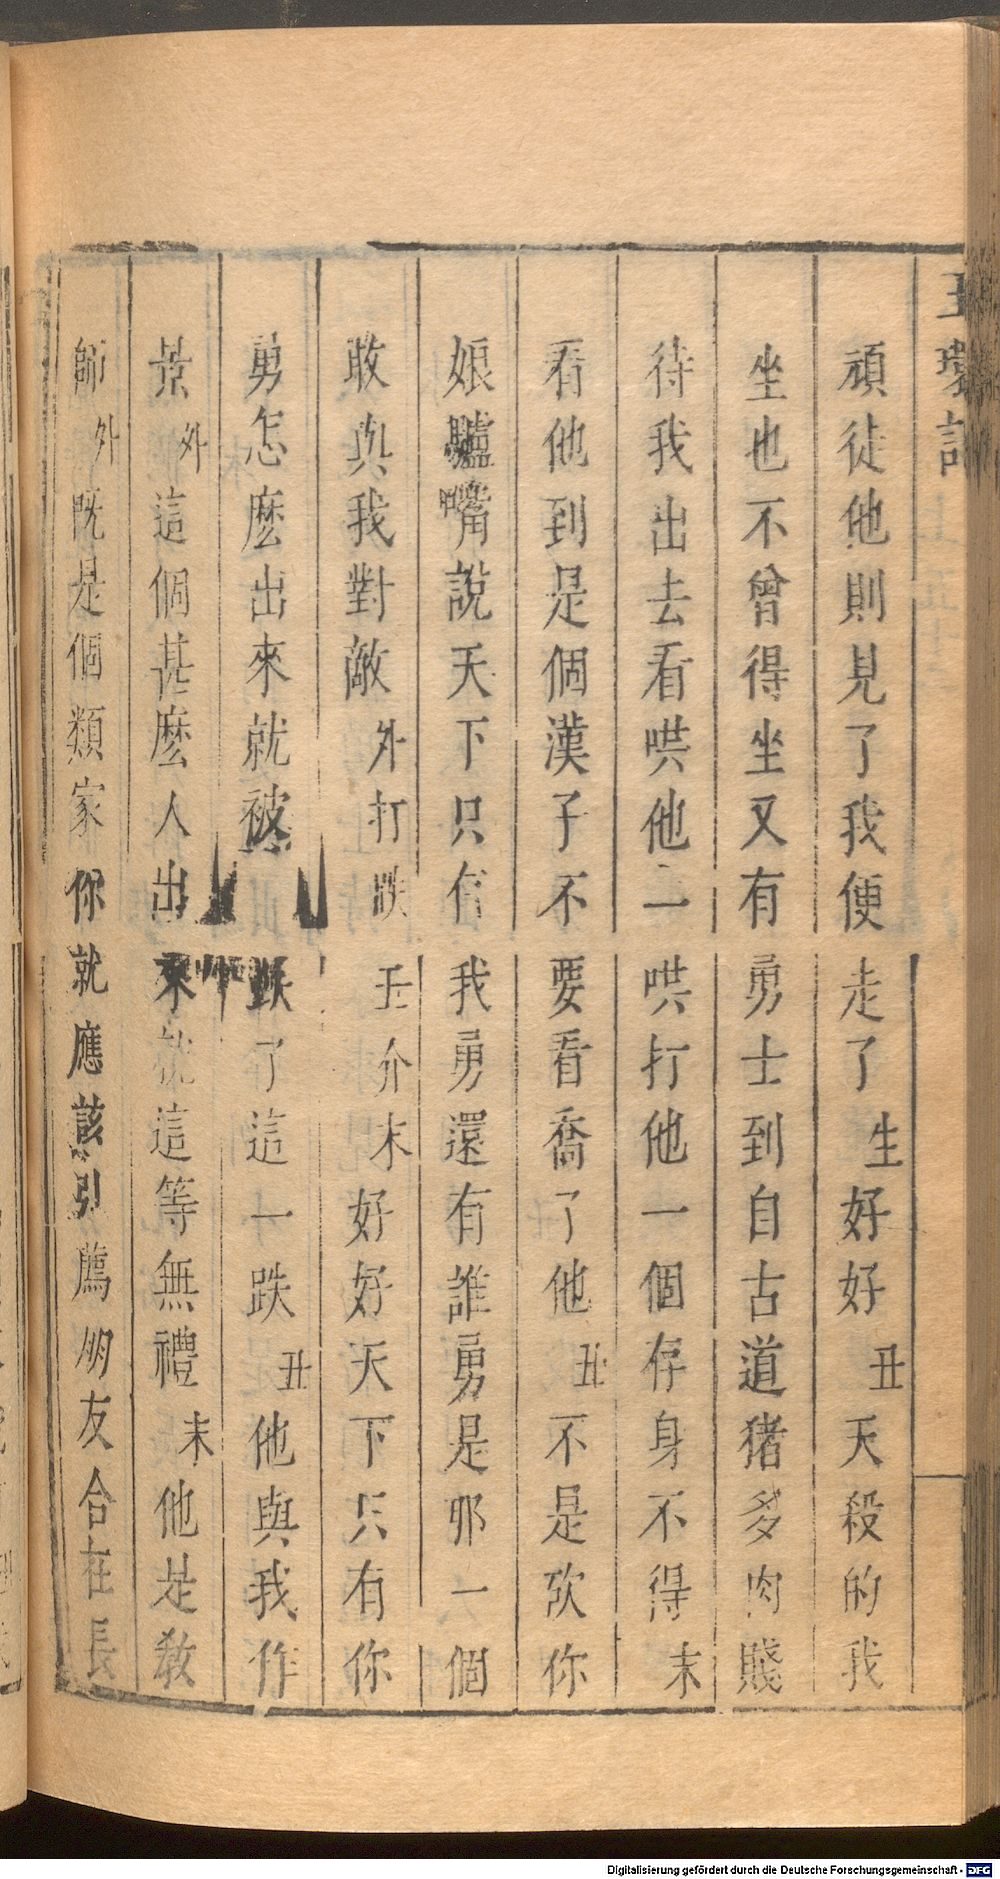 玉環記
頑徒他則見了我便走了生好好丑天殺的我
坐也不曾得坐又有勇士到自古道猪多肉賤
待我出去看哄他一哄打他一個存身不得末
看他到是個漢子不要看喬了他丑不是欺你
娘驢嘴說天下只有我勇還有誰勇是那一個
敢與我對敵外打跌丑介末好好天下只有你
勇怎麽出來就被跌了這一跌丑他與我作
景外這個甚麽人出來就這等無禮末他是教
師外既是個類家你就應該引薦朋友合在長
Digitalisierung gefördert durch die Deutsche Forschungsgemeinschaft - DFG